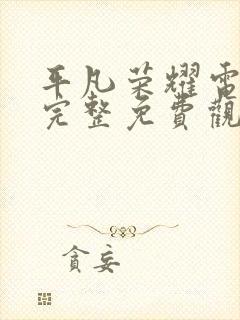 平凡荣耀電
完整免費觀
貪妄